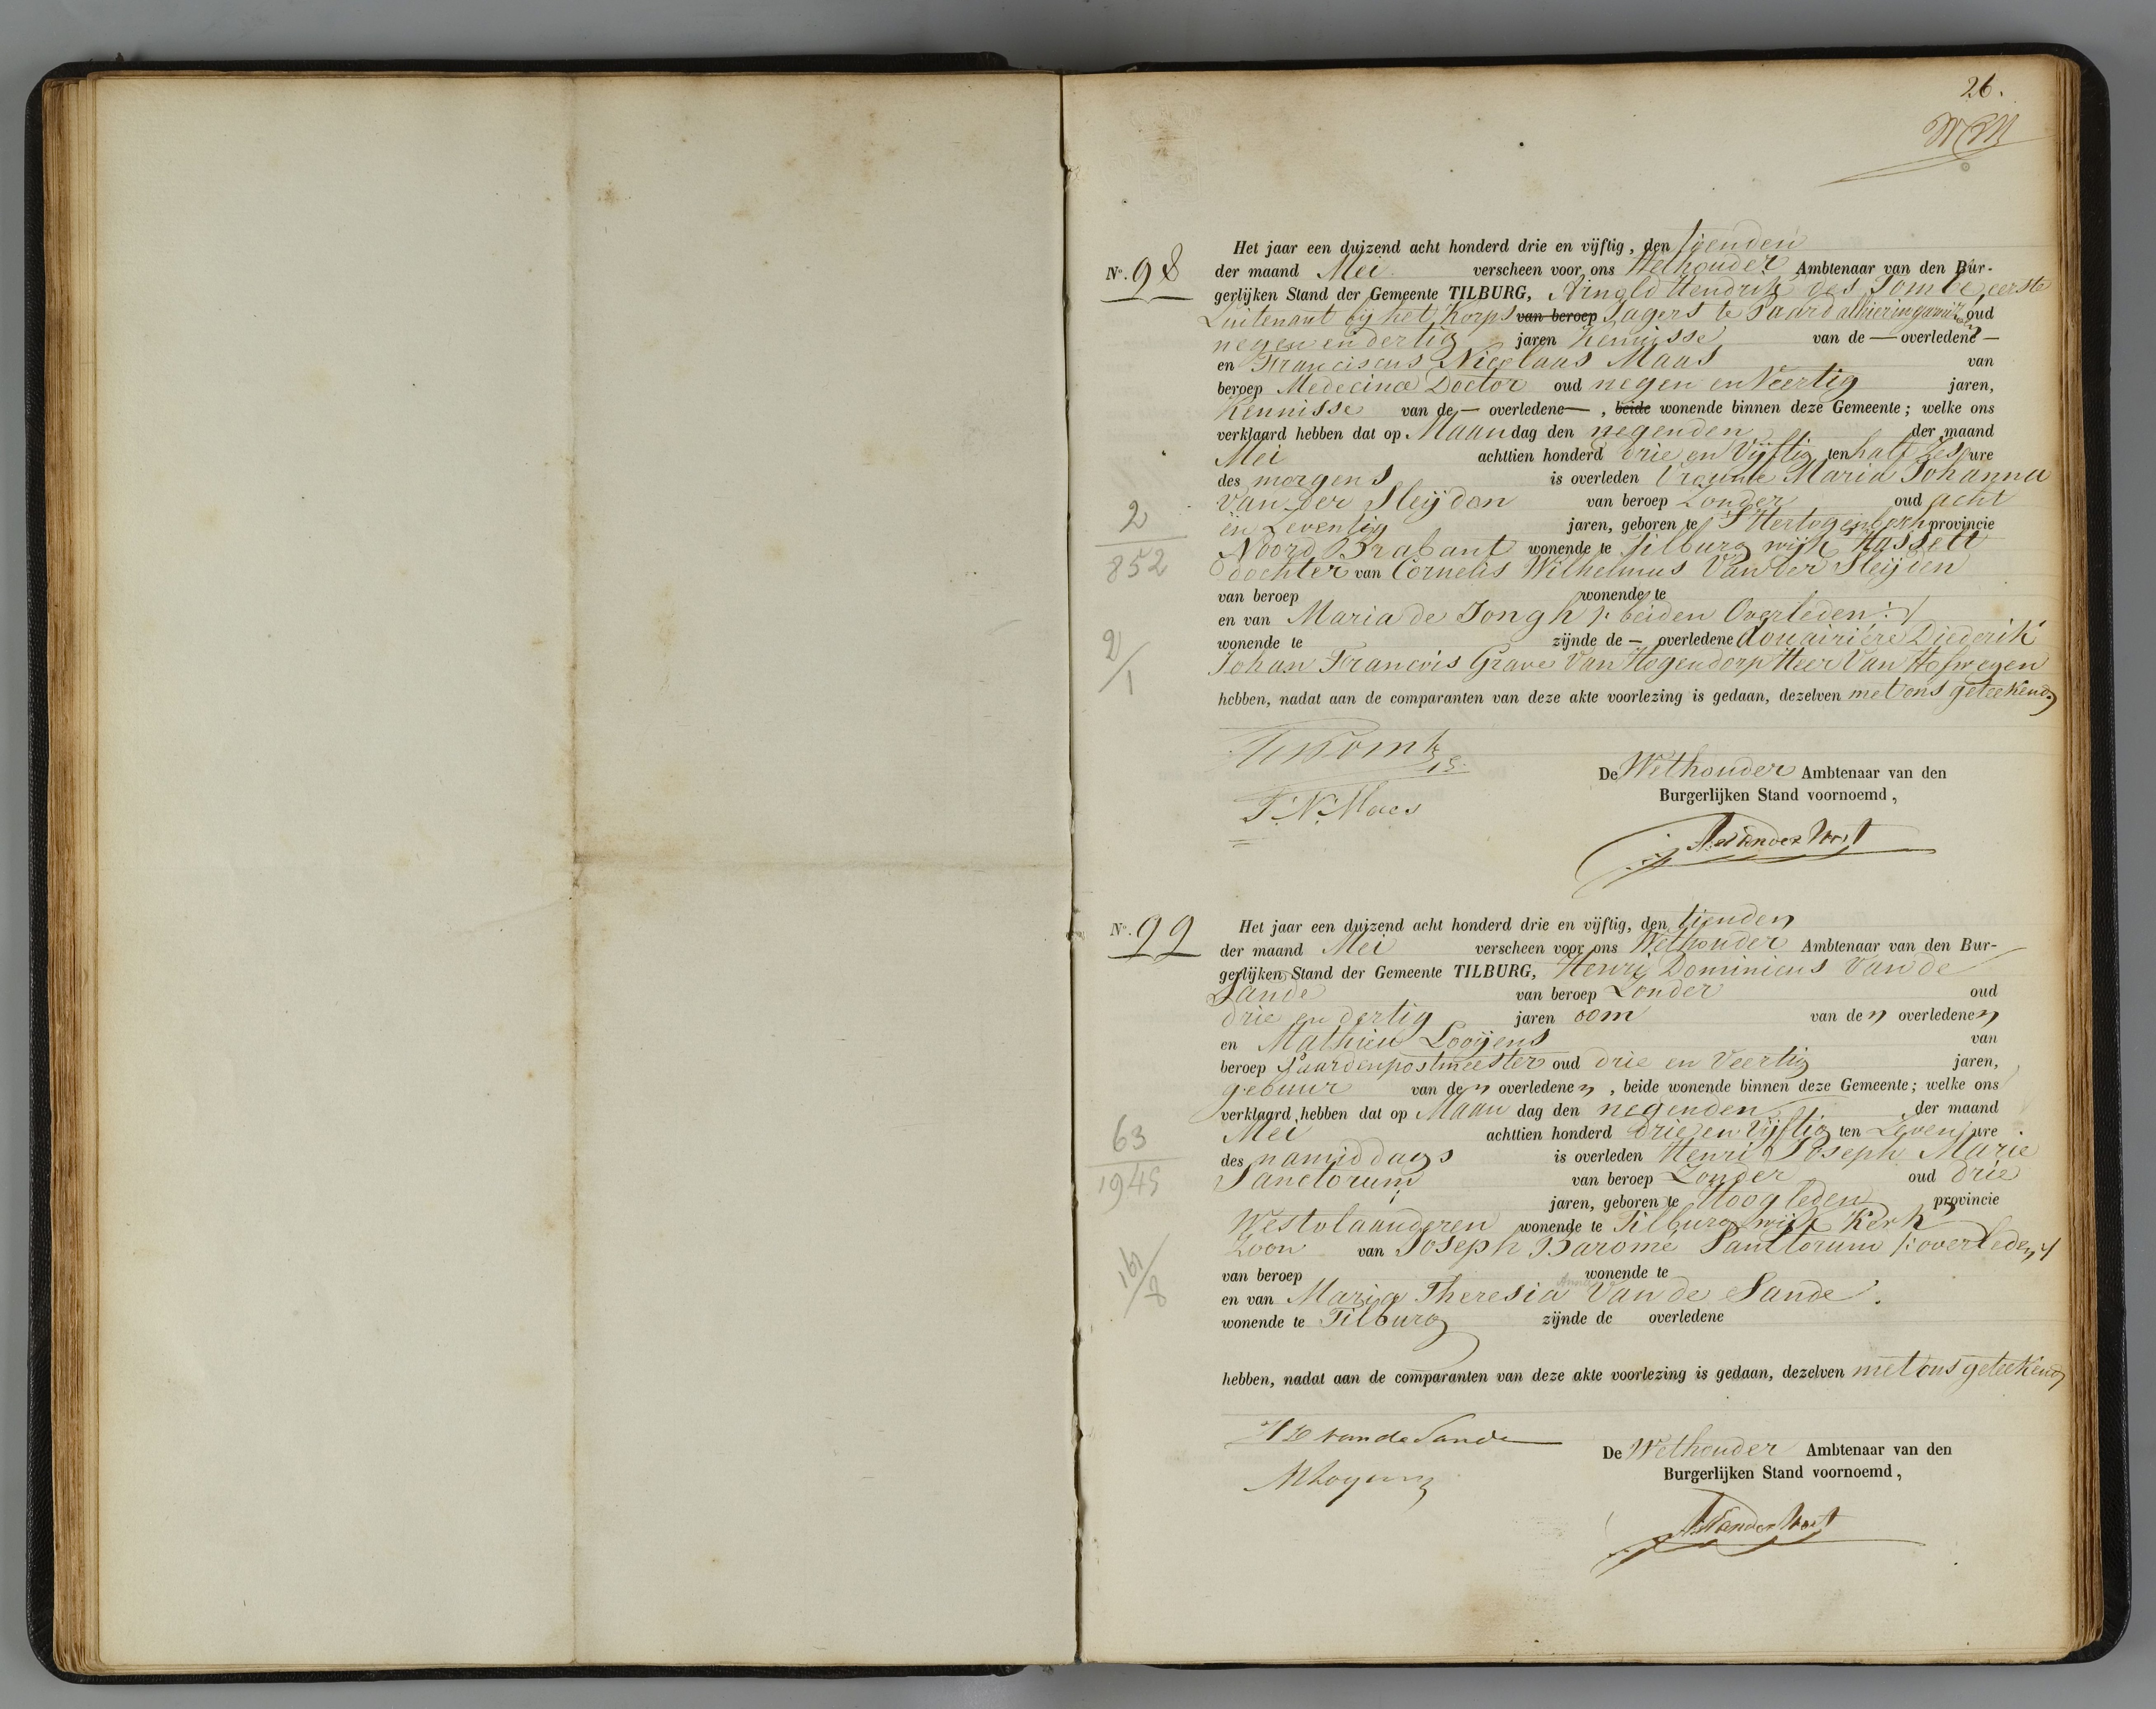 26.
Het jaar een duizend acht honderd drie en vijftig, den tienden
N°. 98 der maand Mei verscheen voor ons Wethouder Ambtenaar van den Bur-
gerlijken Stand der Gemeente TILBURG, Arnold Hendrik des Tombe, eerste
Luitenant bij het Korps van beroep Jagers te Paard alhier in oud
negen en dertig jaren Kennisse van de — overledene —
en Franciscus Nicolaas Maas van
beroep Medecinae Doctor oud negen en Veertig jaren,
Kennisse van de — overledene — , beide wonende binnen deze Gemeente; welke ons
verklaard hebben dat op Maandag den negenden der maand
Mei achttien honderd drie en Vijftig ten half Zes ure
des morgens is overleden Vrouwe Maria Johanna
Van der Sleijden van beroep Zonder oud acht
2 en Zeventig jaren, geboren te S'Hertogenbosch provincie
852 Noord Brabant wonende te Tilburg wijk Hasselt
dochter van Cornelis Wilhelmus Van der Sleijden
van beroep wonende te
en van Maria de Jongh /: beiden Overleden :/
2/1 wonende te zijnde de — overledene douairière Diederik
Johan Francois Grave Van Hogendorp Heer Van Hofwegen
hebben, nadat aan de comparanten van deze akte voorlezing is gedaan, dezelven met ons geteekend
De Wethouder Ambtenaar van den
F. N. Maas
Burgerlijken Stand voornoemd,
N°. 99 Het jaar een duizend acht honderd drie en vijftig, den tienden
der maand Mei verscheen voor ons Wethouder Ambtenaar van den Bur-
gerlijken Stand der Gemeente TILBURG, Henri Dominicus Van de
Sande van beroep Zonder oud
drie en dertig jaren oom van den overledenen
en Mathieu Looijens van
beroep Paardenpostmeester oud drie en Veertig jaren,
gebuur van den overledenen , beide wonende binnen deze Gemeente; welke ons
verklaard hebben dat op Maan dag den negenden der maand
63 Mei achttien honderd drie en Vijftig ten Zeven ure
1945 des namiddags is overleden Henri Joseph Marie
Sanctorum van beroep Zonder oud drie
jaren, geboren te Hoogleden provincie
Westvlaanderen wonende te Tilburg wijk Kerk
161/8 Zoon van Joseph Baromé Sanctorum /: overleden :/
van beroep wonende te
Anna
en van Maria Theresia Van de Sande.
wonende te Tilburg zijnde de overledene
hebben, nadat aan de comparanten van deze akte voorlezing is gedaan, dezelven met ons geteekend
H D van de Sande
De Wethouder Ambtenaar van den
Burgerlijken Stand voornoemd,